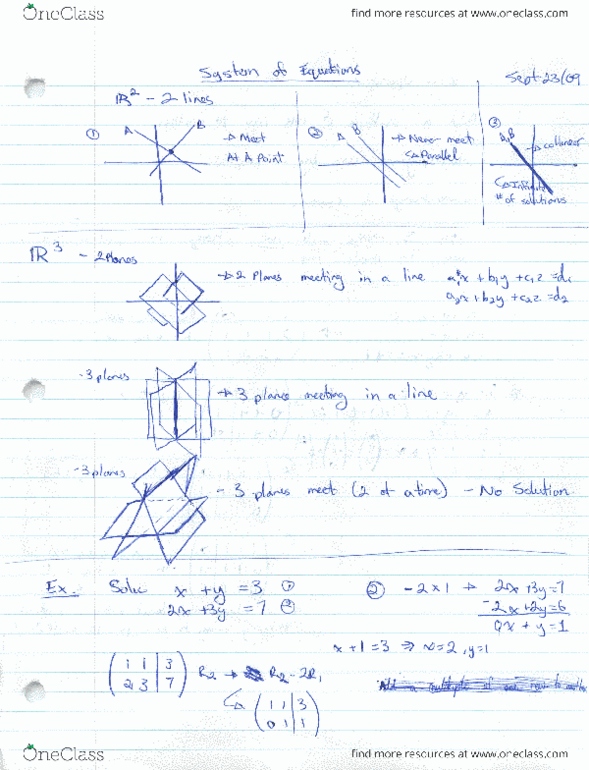 OneClass
find more resources at www.oneclass.com
System of Equations
Sept 23/09
ℝ² - 2 lines
① A B → Meet
At A Point
② A B → Never meet
↳ Parallel
③ A,B → collinear
↳ Infinite
# of solutions
ℝ³ - 2 Planes
→ 2 Planes meeting in a line a₁x + b₁y + c₁z = d₁
a₂x + b₂y + c₂z = d₂
- 3 planes
→ 3 planes meeting in a line
- 3 planes
- 3 planes meet (2 at a time) - No Solution
Ex. Solve x + y = 3 ①
2x + 3y = 7 ②
② - 2 x 1 → 2x + 3y = 7
- 2x + 2y = 6
0x + y = 1
x + 1 = 3 ⇒ x = 2, y = 1
( 1 1 | 3
2 3 | 7 ) R₂ → R₂ - 2R₁
↳ ( 1 1 | 3
0 1 | 1 )
OneClass
find more resources at www.oneclass.com